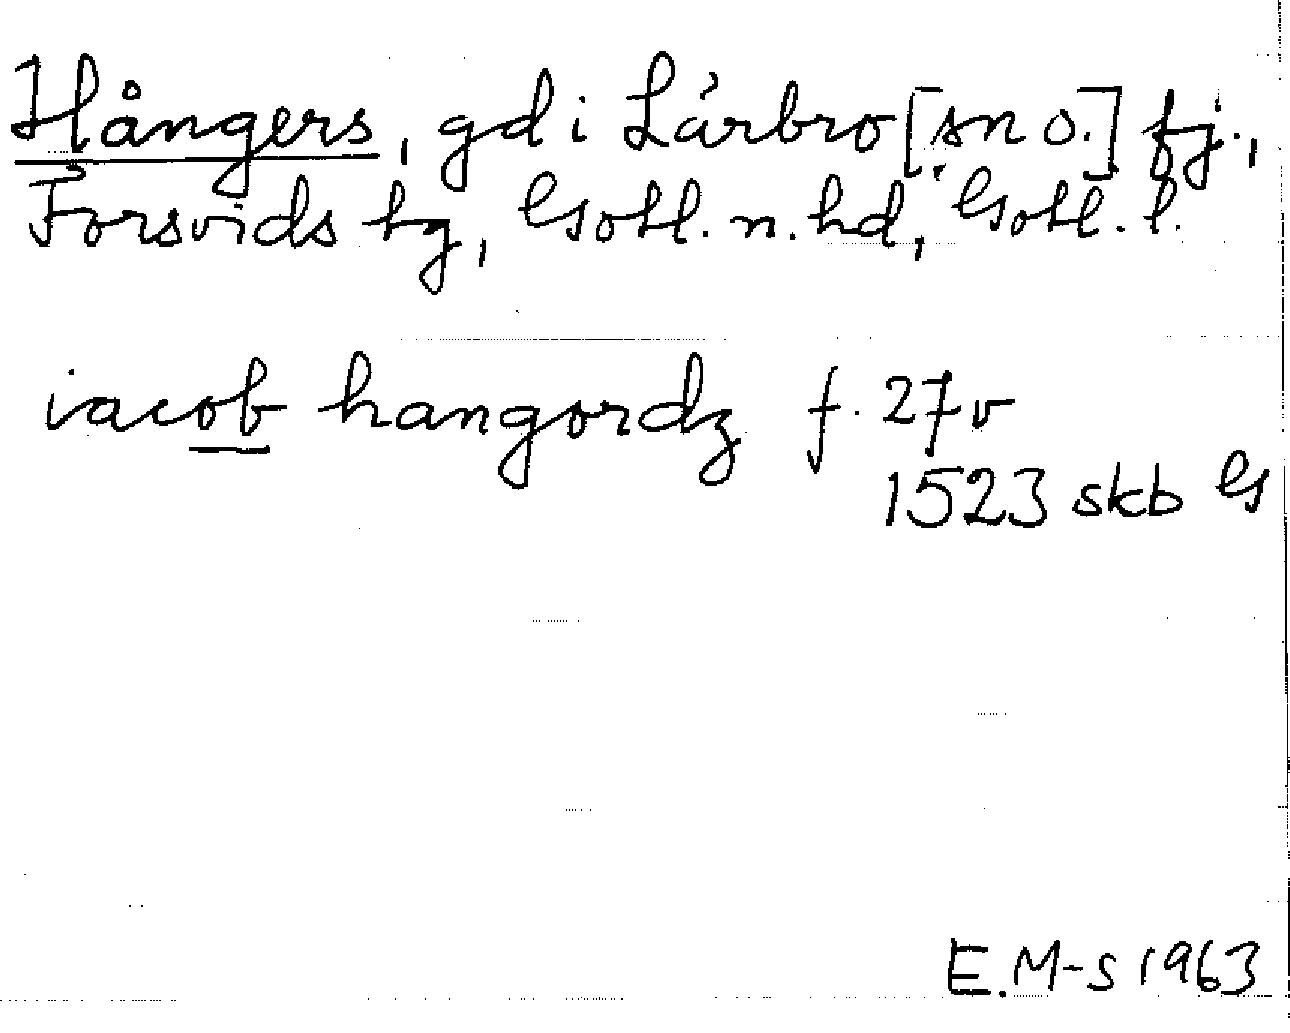 Hångers, gd i Lärbro [sn o.] fj.,
Forsvids tg, Gotl. n. hd, Gotl. l.
iacob hangordz f. 27v
1523 skb G
E.M-S 1963